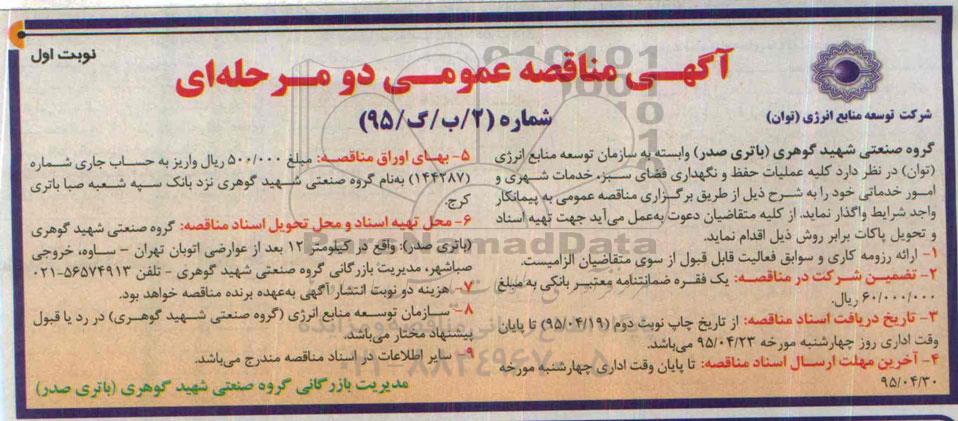 نوبت اول
آگهی مناقصه عمومی دو مرحله‌ای
شماره (۲/ب/گ/۹۵)
شرکت توسعه منابع انرژی (توان)
گروه صنعتی شهید گوهری (باتری صدر) وابسته به سازمان توسعه منابع انرژی
(توان) در نظر دارد کلیه عملیات حفظ و نگهداری فضای سبز، خدمات شهری و
امور خدماتی خود را به شرح ذیل از طریق برگزاری مناقصه عمومی به پیمانکار
واجد شرایط واگذار نماید. از کلیه متقاضیان دعوت به‌عمل می‌آید جهت تهیه اسناد
و تحویل پاکات برابر روش ذیل اقدام نماید.
۱- ارائه رزومه کاری و سوابق فعالیت قابل قبول از سوی متقاضیان الزامیست.
۲- تضمین شرکت در مناقصه: یک فقره ضمانتنامه معتبر بانکی به مبلغ
۶۰/۰۰۰/۰۰۰ ریال.
۳- تاریخ دریافت اسناد مناقصه: از تاریخ چاپ نوبت دوم (۹۵/۰۴/۱۹) تا پایان
وقت اداری روز چهارشنبه مورخه ۹۵/۰۴/۲۳ می‌باشد.
۴- آخرین مهلت ارسال اسناد مناقصه: تا پایان وقت اداری چهارشنبه مورخه
۹۵/۰۴/۳۰
۵- بهای اوراق مناقصه: مبلغ ۵۰۰/۰۰۰ ریال واریز به حساب جاری شماره
(۱۴۴۲۸۷) به‌نام گروه صنعتی شهید گوهری نزد بانک سپه شعبه صبا باتری
کرج.
۶- محل تهیه اسناد و محل تحویل اسناد مناقصه: گروه صنعتی شهید گوهری
(باتری صدر): واقع در کیلومتر ۱۲ بعد از عوارضی اتوبان تهران - ساوه، خروجی
صباشهر، مدیریت بازرگانی گروه صنعتی شهید گوهری - تلفن ۵۶۵۷۴۹۱۳-۰۲۱
۷- هزینه دو نوبت انتشار آگهی به‌عهده برنده مناقصه خواهد بود.
۸- سازمان توسعه منابع انرژی (گروه صنعتی شهید گوهری) در رد یا قبول
پیشنهاد مختار می‌باشد.
۹- سایر اطلاعات در اسناد مناقصه مندرج می‌باشد.
مدیریت بازرگانی گروه صنعتی شهید گوهری (باتری صدر)
۰۲۱-۸۸۳۴۹۶۷۰-۵